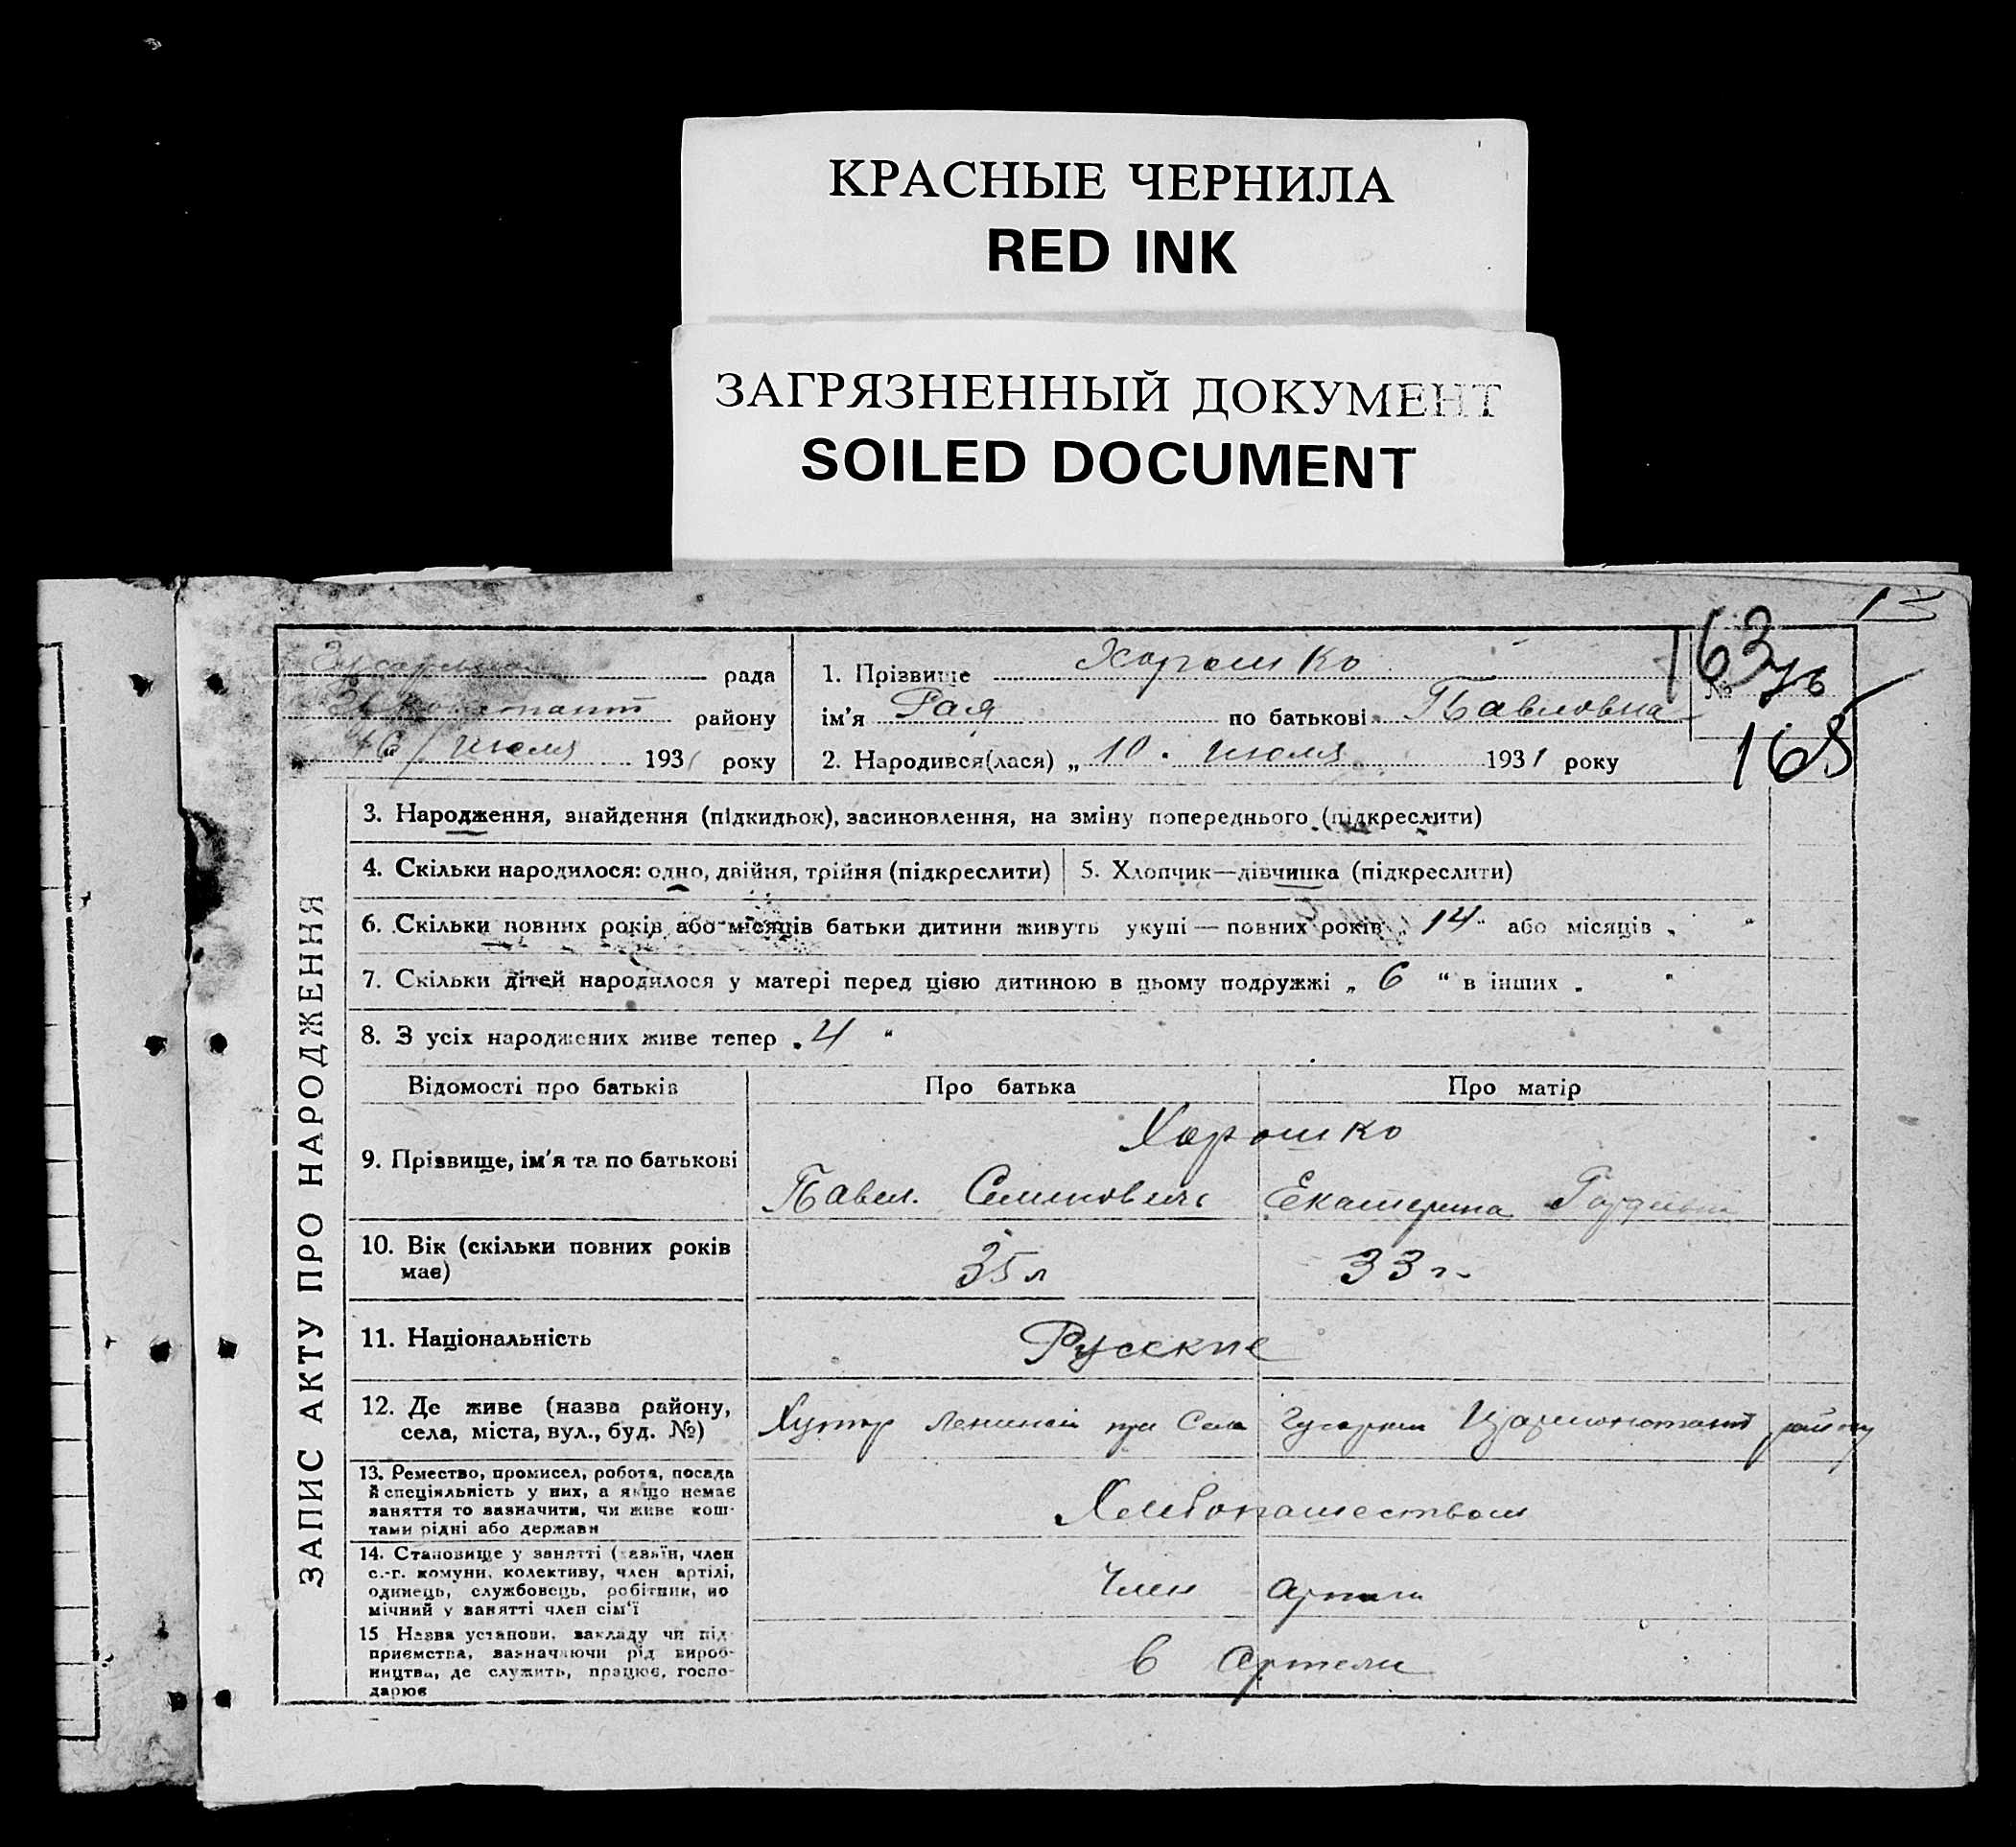 КРАСНЫЕ ЧЕРНИЛА
RED INK
ЗАГРЯЗНЕННЫЙ ДОКУМЕНТ
SOILED DOCUMENT
13
163
165
рада
району
16/ июля 1931 року
1. Прізвище Харошко
ім'я Рая по батькові Павловна
№ 76
2. Народився(лася) „ 10 . июля 1931 року
ЗАПИС АКТУ ПРО НАРОДЖЕННЯ
3. Народження, знайдення (підкидьок), засиновлення, на зміну попереднього (підкреслити)
4. Скільки народилося: одно, двійня, трійня (підкреслити)
5. Хлопчик—дівчинка (підкреслити)
6. Скільки повних років або місяців батьки дитини живуть укупі — повних років „ 14 “ або місяців „ “
7. Скільки дітей народилося у матері перед цією дитиною в цьому подружжі „ 6 “ в інших „ “
8. З усіх народжених живе тепер „ 4 “
Відомості про батьків Про батька Про матір
Харошко
9. Прізвище, ім'я та по батькові
Павел Семенович Екатерина
10. Вік (скільки повних років
має)
35 л 33 г.
11. Національність
Русские
12. Де живе (назва району,
села, міста, вул., буд. №)
Хутор при Села району
13. Ремество, промисел, робота, посада
й спеціяльність у них, а якщо немає
заняття то зазначити, чи живе кош-
тами рідні або держави
Хлебопашеством
14. Становище у занятті (хазяїн, член
с.-г. комуни, колективу, член артілі,
одинець, службовець, робітник, по
мічний у занятті член сім'ї
Член артели
15 Назва установи, закладу чи під-
приємства, зазначаючи рід вироб-
ництва, де служить, працює, госпо-
дарює
в Артели